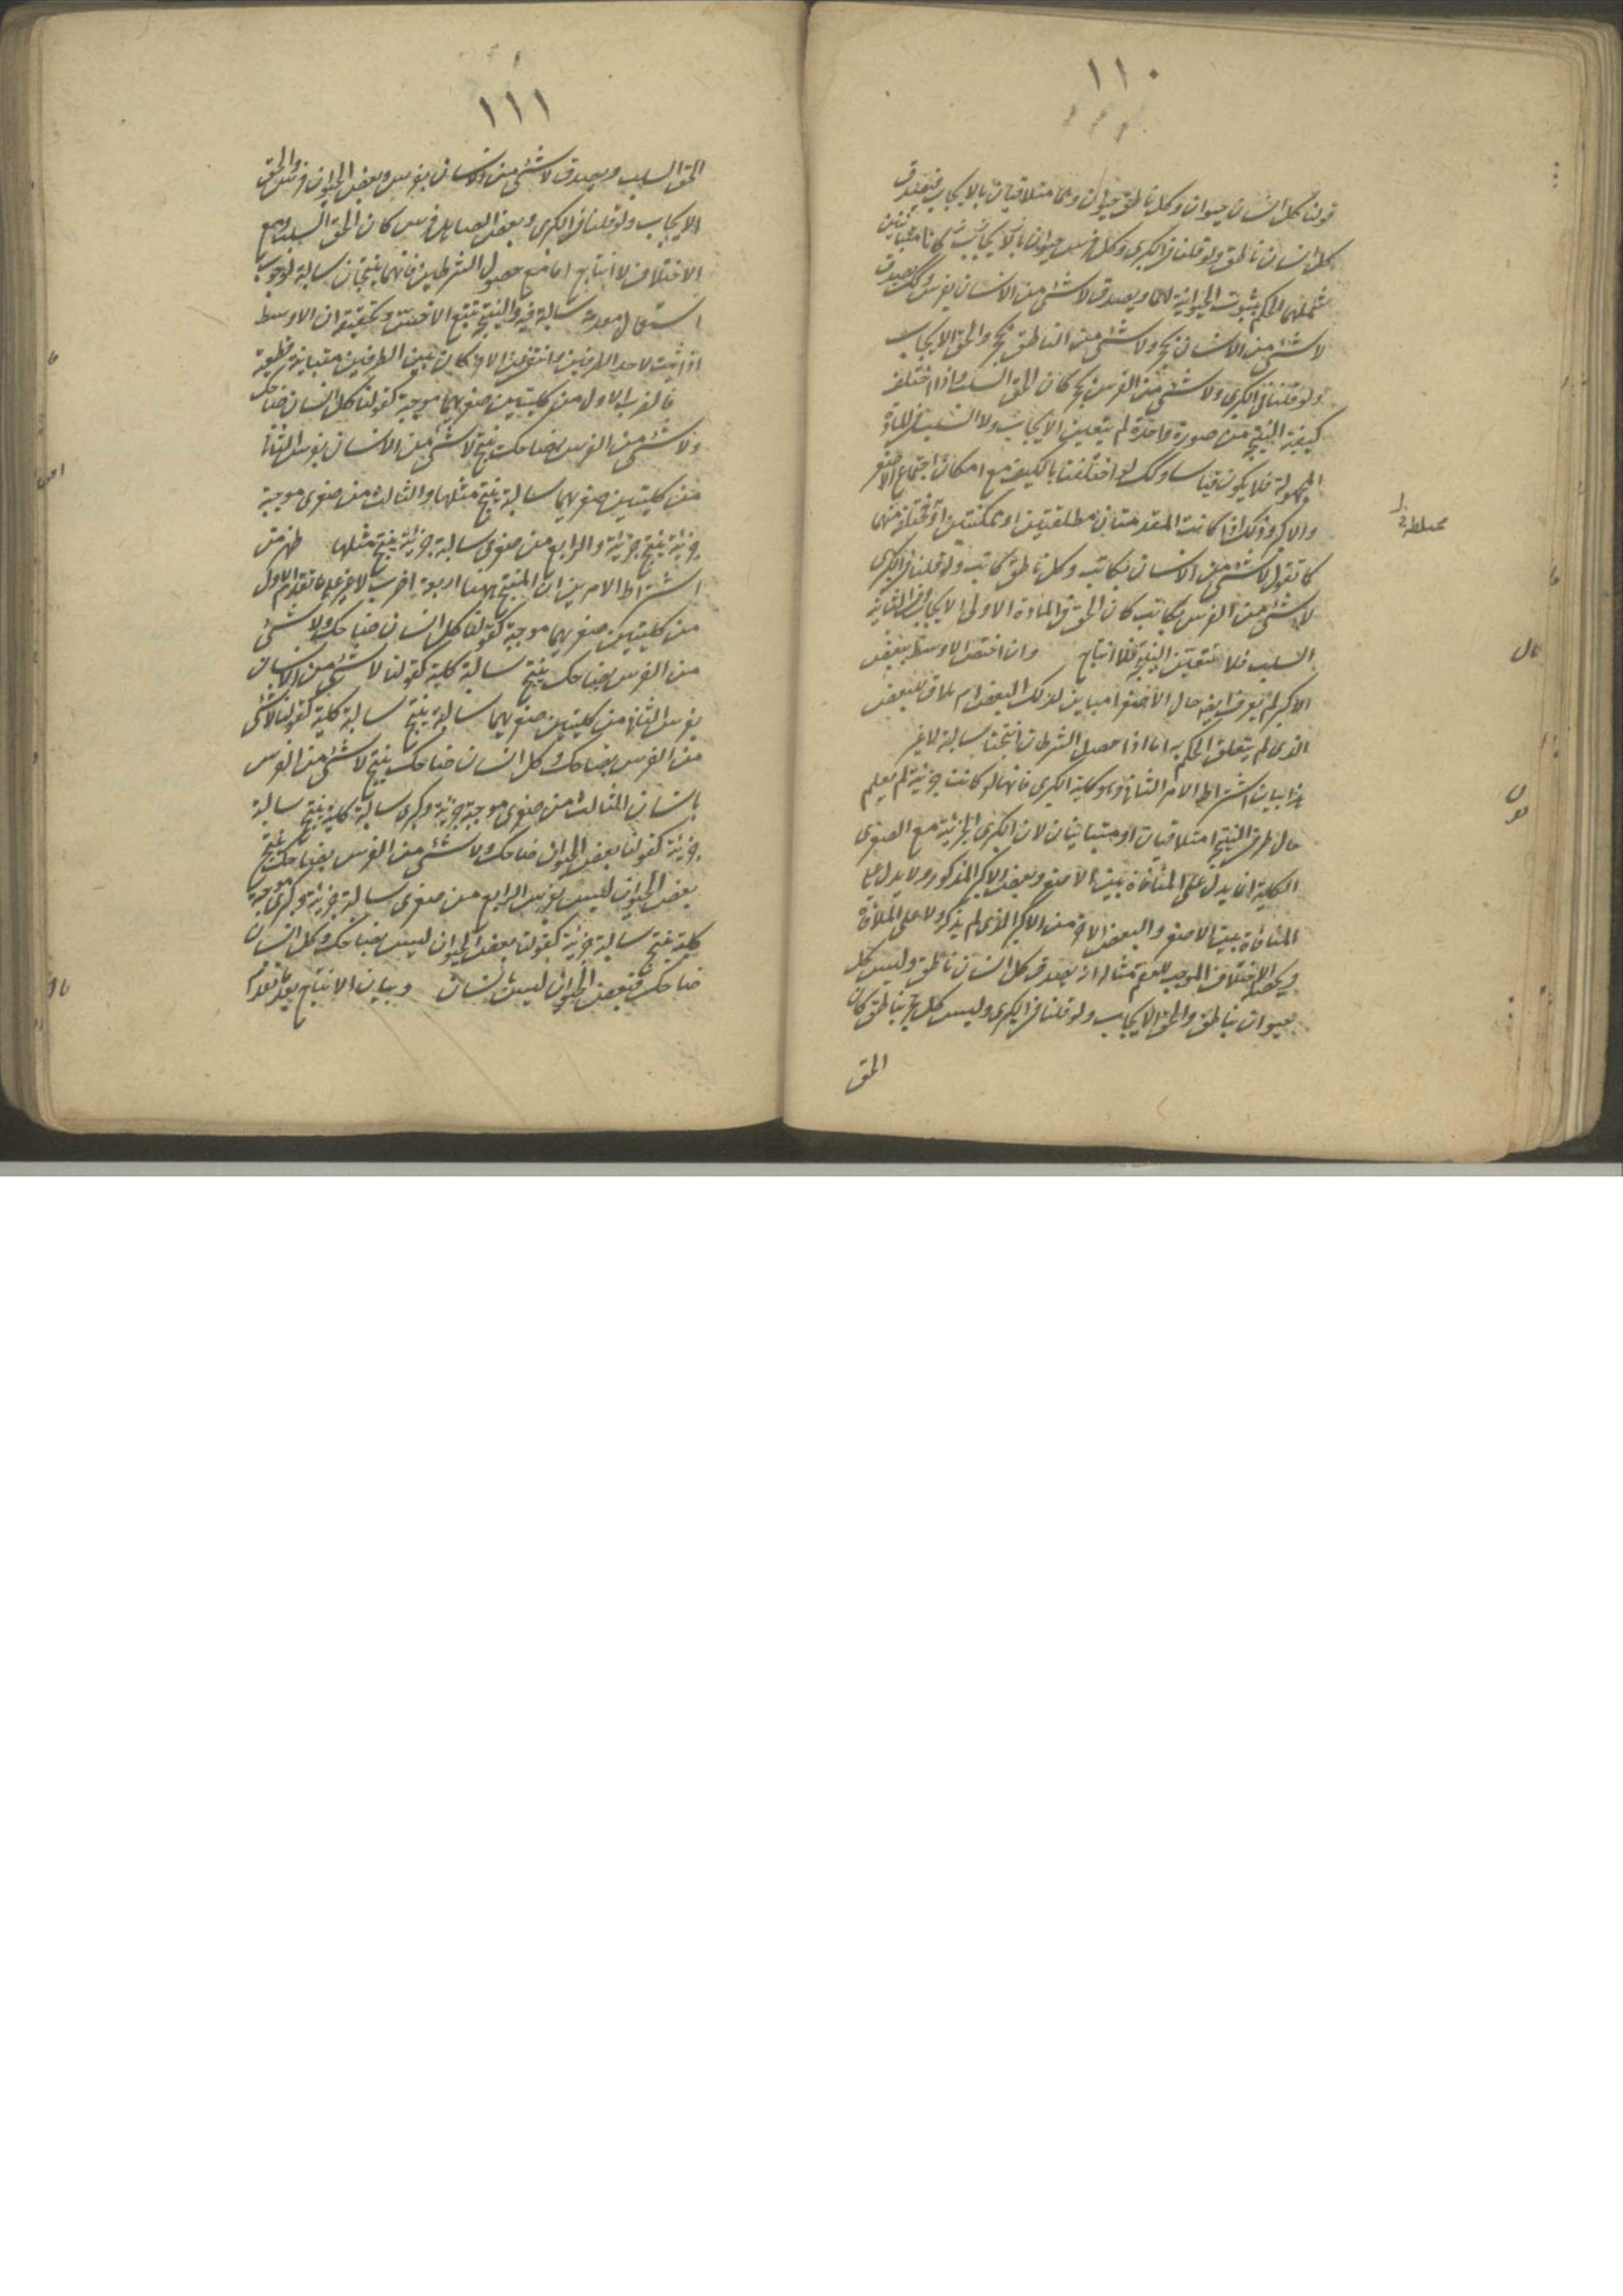 ١١٠
قولنا كل انسان حيوان وكل ناطق حيوان وهما متلاقيان بالايجاب فيصدق
كل انسان ناطق ولو قلنا في الكبرى وكل فرس حيوان بالايجاب كانا متباينين
شملهما الحكم بثبوت الحيوانية لهما ويصدق لا شئ من الانسان بفرس وكذلك يصدق
لا شئ من الانسان بحجر ولا شئ من الناطق بحجر والحق الايجاب
ولو قلنا في الكبرى ولا شئ من الفرس بحجر كان الحق السلب واذا اختلف
كيفية النتيجة من صورة واحدة لم يتعين الايجاب ولا السلب في المادة
المجهولة فلا يكون قياسا وكذلك لو اختلفتا بالكيف مع امكان اجتماع الاصغر
والاكبر وذلك اذا كانت المقدمتان مطلقتين او ممكنتين او مختلفتين منهما
كما تقول لا شئ من الانسان بكاتب وكل ناطق كاتب ولو قلنا في الكبرى
لا شئ من الفرس بكاتب كان الحق في المادة الاولى الايجاب وفي الثانية
السلب فلا تتعين النتيجة فلا انتاج وان اختص الاوسط ببعض
الاكبر لم يعرف ايضا حال الاصغر امباين لذلك البعض ام ملاق للبعض
الذي لم يتعلق الحكم به اما اذا حصل الشرطان انتجتا سالبة لا غير
هذا بيان اشتراط الامر الثاني وهو كلية الكبرى فانها لو كانت جزئية لم يعلم
حال طرفي النتيجة امتلاقيان او متباينان لان الكبرى الجزئية مع الصغرى
الكلية انما يدل على المنافاة بين الاصغر وبعض الاكبر المذكور ولا يدل على
المنافاة بين الاصغر والبعض الاخر من الاكبر الذي لم يذكر ولا على الملاقاة
ويحصل الاختلاف الموجب للعقم مثاله انه يصدق كل انسان ناطق وليس كل
حيوان بناطق والحق الايجاب ولو قلنا في الكبرى وليس كل حجر بناطق كان
الحق
١١١
الحق السلب ويصدق لا شئ من الانسان بفرس وبعض الحيوان فرس والحق
الايجاب ولو قلنا في الكبرى وبعض الصاهل فرس كان الحق السلب ومع
الاختلاف لا انتاج اما مع حصول الشرطين فانهما ينتجان سالبة لوجوب
استعمال مقدمة سالبة فيه والنتيجة تتبع الاخس وتحقيقه ان الاوسط
اذا ثبت لاحد الطرفين وانتفى عن الاخر كان بين الطرفين مباينة قطعية
فالضرب الاول من كليتين صغريهما موجبة كقولنا كل انسان ضاحك
ولا شئ من الفرس بضاحك ينتج لا شئ من الانسان بفرس الثاني
من كليتين صغريهما سالبة ينتج مثلها والثالث من صغرى موجبة
جزئية ينتج جزئية والرابع من صغرى سالبة جزئية ينتج مثلها ظهر من
اشتراط الامرين ان المنتج ههنا اربعة اضرب لا غير على ما تقدم الاول
من كليتين صغريهما موجبة كقولنا كل انسان ضاحك ولا شئ
من الفرس بضاحك ينتج سالبة كلية كقولنا لا شئ من الانسان
بفرس الثاني من كليتين صغريهما سالبة ينتج سالبة كلية كقولنا لا شئ
من الفرس بضاحك وكل انسان ضاحك ينتج لا شئ من الفرس
بانسان الثالث من صغرى موجبة جزئية وكبرى سالبة كلية ينتج سالبة
جزئية كقولنا بعض الحيوان ضاحك ولا شئ من الفرس بضاحك ينتج
بعض الحيوان ليس بفرس الرابع من صغرى سالبة جزئية وكبرى موجبة
كلية ينتج سالبة جزئية كقولنا بعض الحيوان ليس بضاحك وكل انسان
ضاحك فبعض الحيوان ليس بانسان وبيان الانتاج بعد تقدم